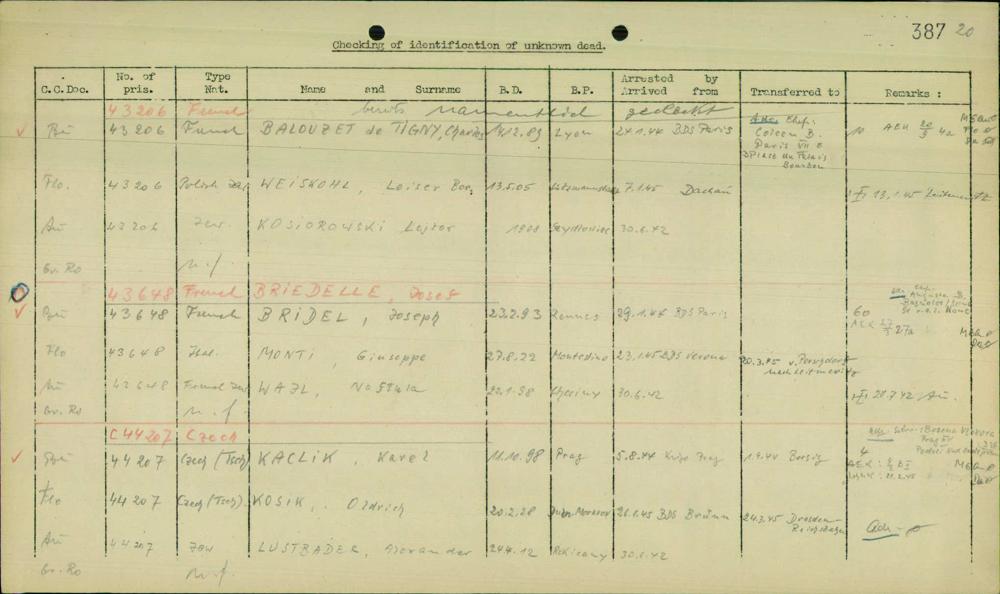 387 20
Checking of identification of unknown dead.
C.C.Doc. No. of pris. Type Nat. Name and Surname B.D. B.P. Arrested by Arrived from Transferred to Remarks :
43206 French bereits namentlich
Bu 43206 French BALOUZET de TIGNY, Charles 14.12.89 Lyon 24.1.44 BDS Paris
Ehefr:
Coleen B.
Paris VII e
3 Place du Palais
Bourbon
10 AEK 20/3 42
Flo. 43206 Polish WEISKOHL, Leiser 13.5.05 7.1.45 Dachau 13.1.45 Leitmeritz
Au 43206 Jew. KOSIOROWSKI Lejtor 1908 30.6.42
Gr. Ro n.f.
43648 French BRIEDELLE, Josef
Bu 43648 French BRIDEL, Joseph 23.2.93 Rennes 29.1.44 BDS Paris 60
Ehefr.
Augusta B.
AEK 27a
Flo 43648 Ital. MONTI Giuseppe 27.8.22 23.1.45 BDS Verona 20.3.45 v.
nach Leitmeritz
Au 43648 French WAJL, 22.1.98 30.6.42 28.7.42 Au.
Gr. Ro n.f.
C44207 Czech
Bu 44207 Czech (Tsch) KACLIK, Karel 11.10.98 Prag 5.8.44 Kripo Prag 1.9.44 4
Bozena
Prag XV
AEK:
Flo 44207 Czech (Tsch). KOSIK, Oldrich 20.2.28 26.1.45 BDS Brünn 24.3.45 Dresden-
Au 44207 Jew LUSTBADER, 24.4.12 30.6.42
Gr. Ro n.f.